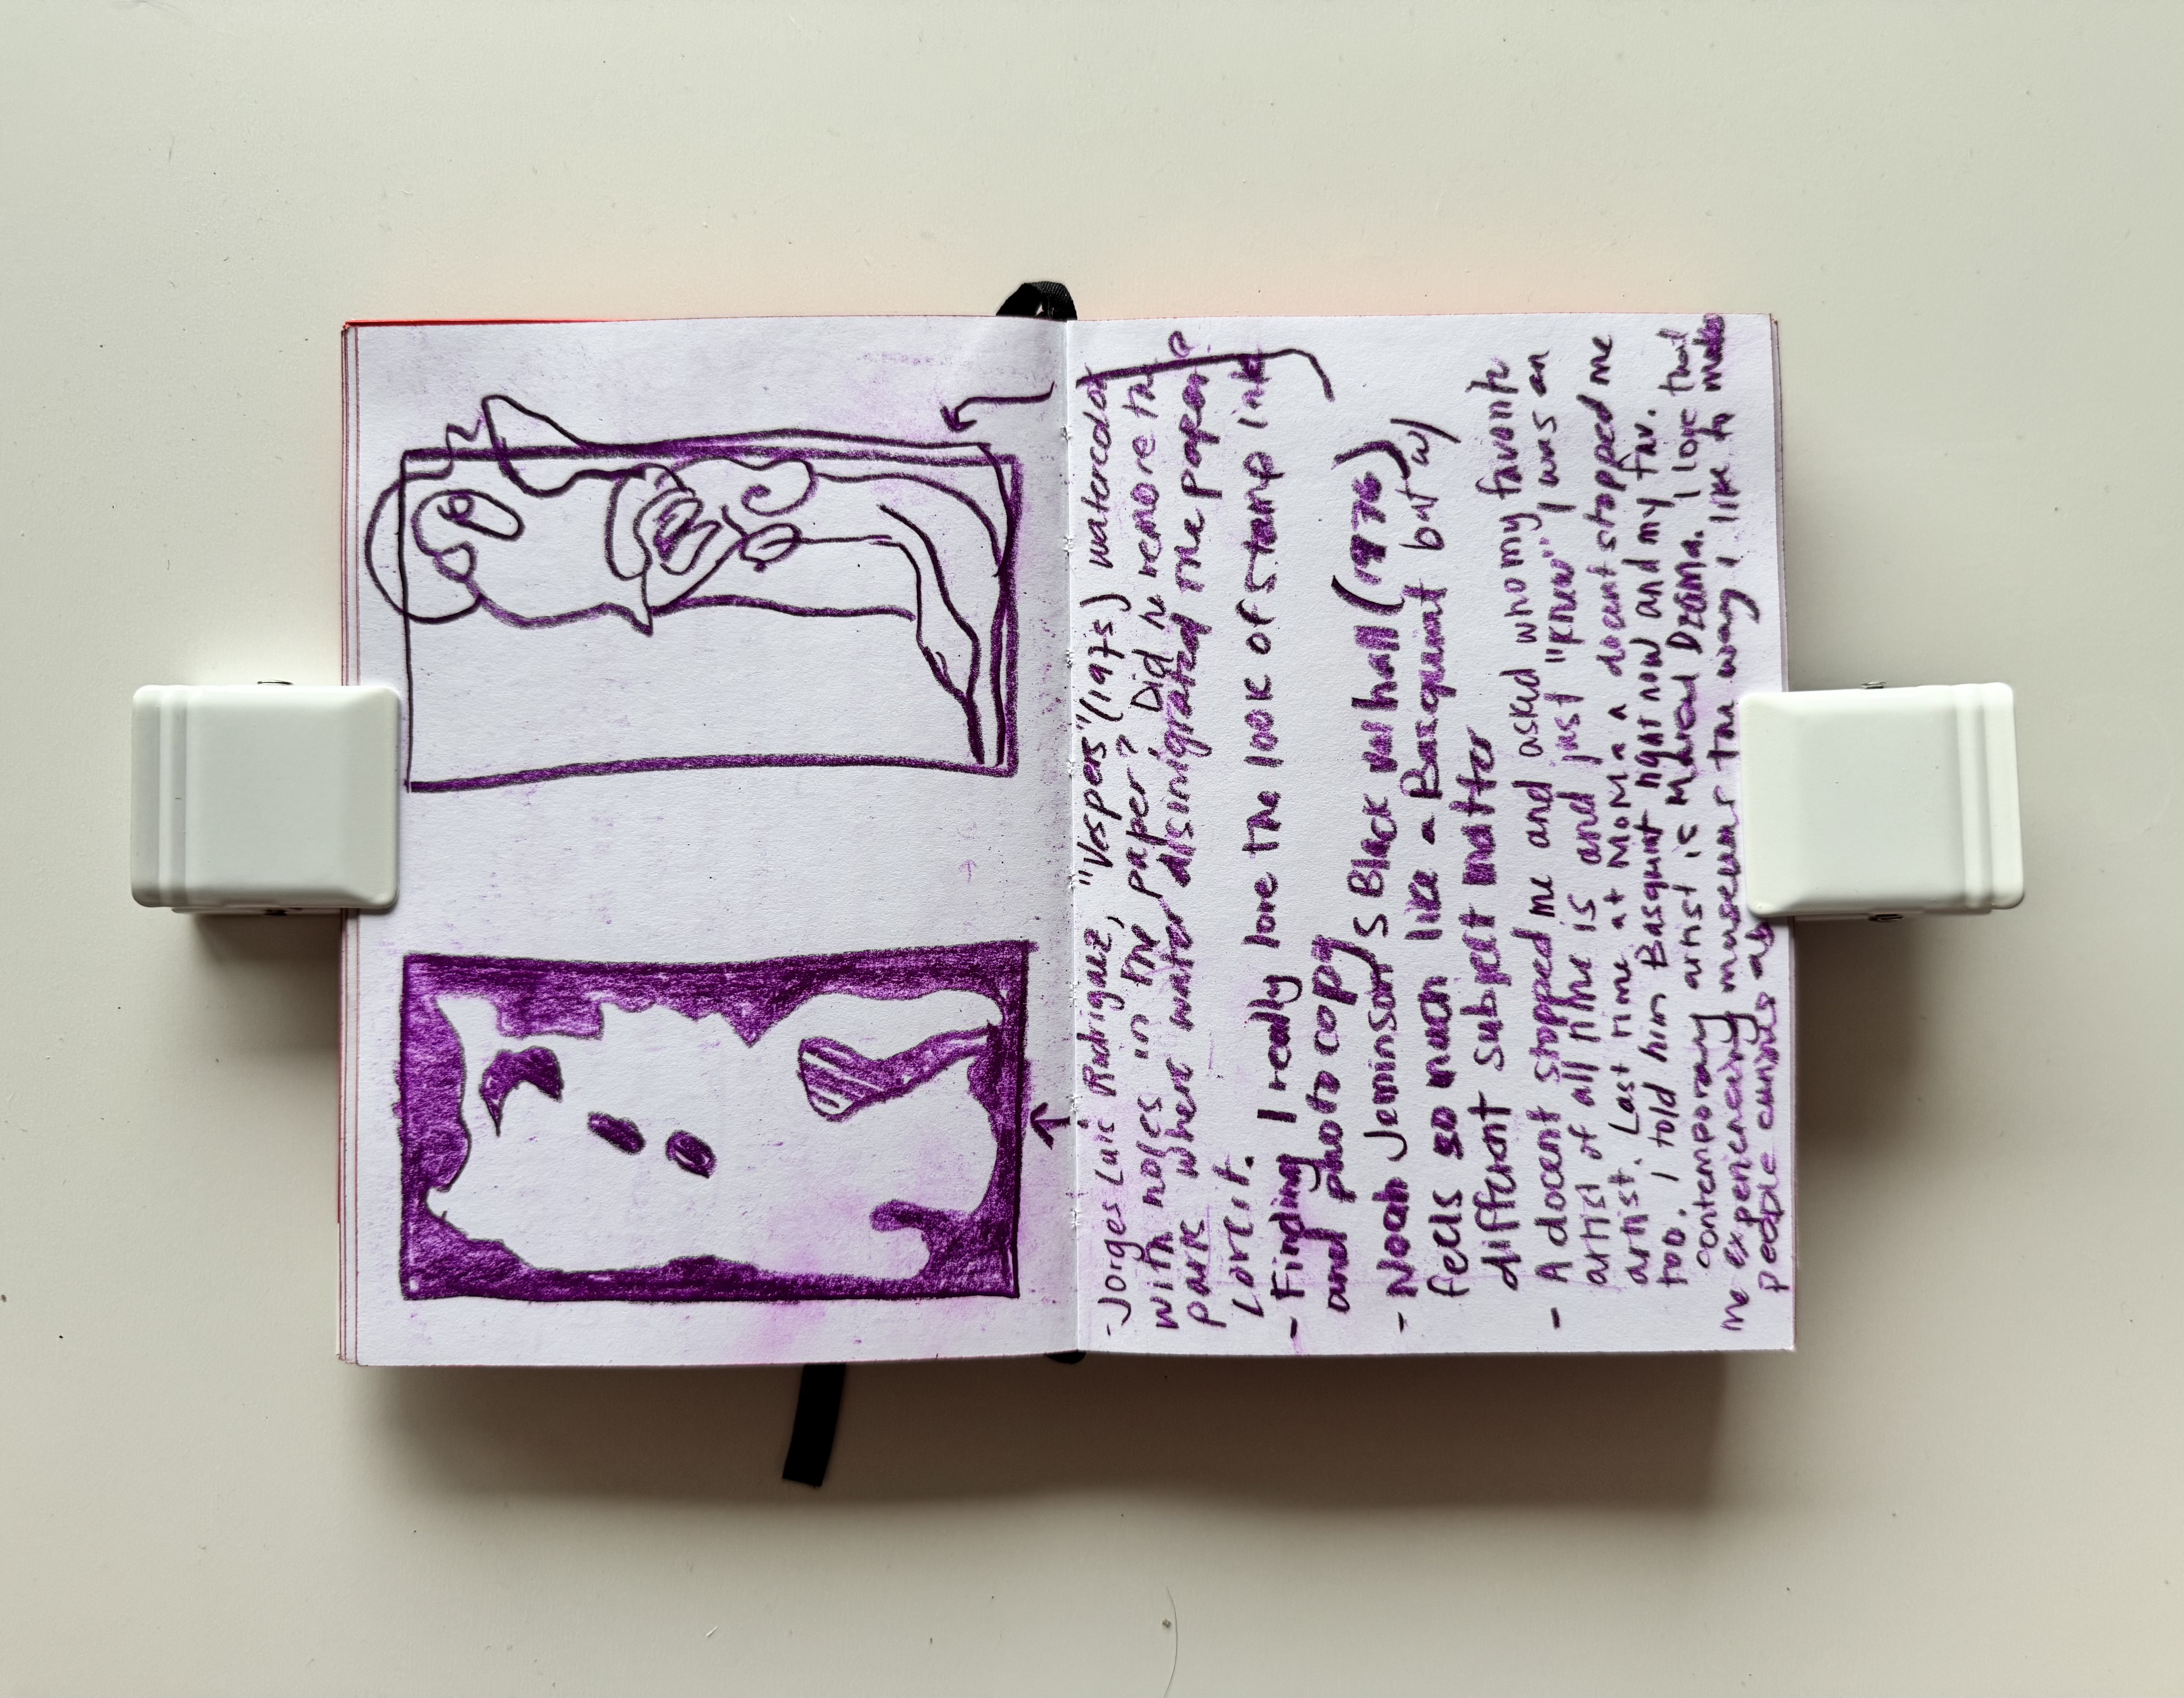 - Jorges Luis Rodriguez, "Vespers" (1975) watercolor
with holes in the paper? Did he remove the
park where water disinigrated the paper?
Love it.
- Finding I really love the look of stamp ink
and photo copy
- Noah Jeminson's Black Whall (1976)
feels so much like a Basquiat but w/
different subject matter
- A docent stopped me and asked who my favorite
artist of all time is and just "knew" I was an
artist. Last time at MoMA a docent stopped me
too. I told him Basquiat right now and my fav.
contemporary artist is Mdred Drama. I love that
me experiencing museums the way I like to makes
people curious